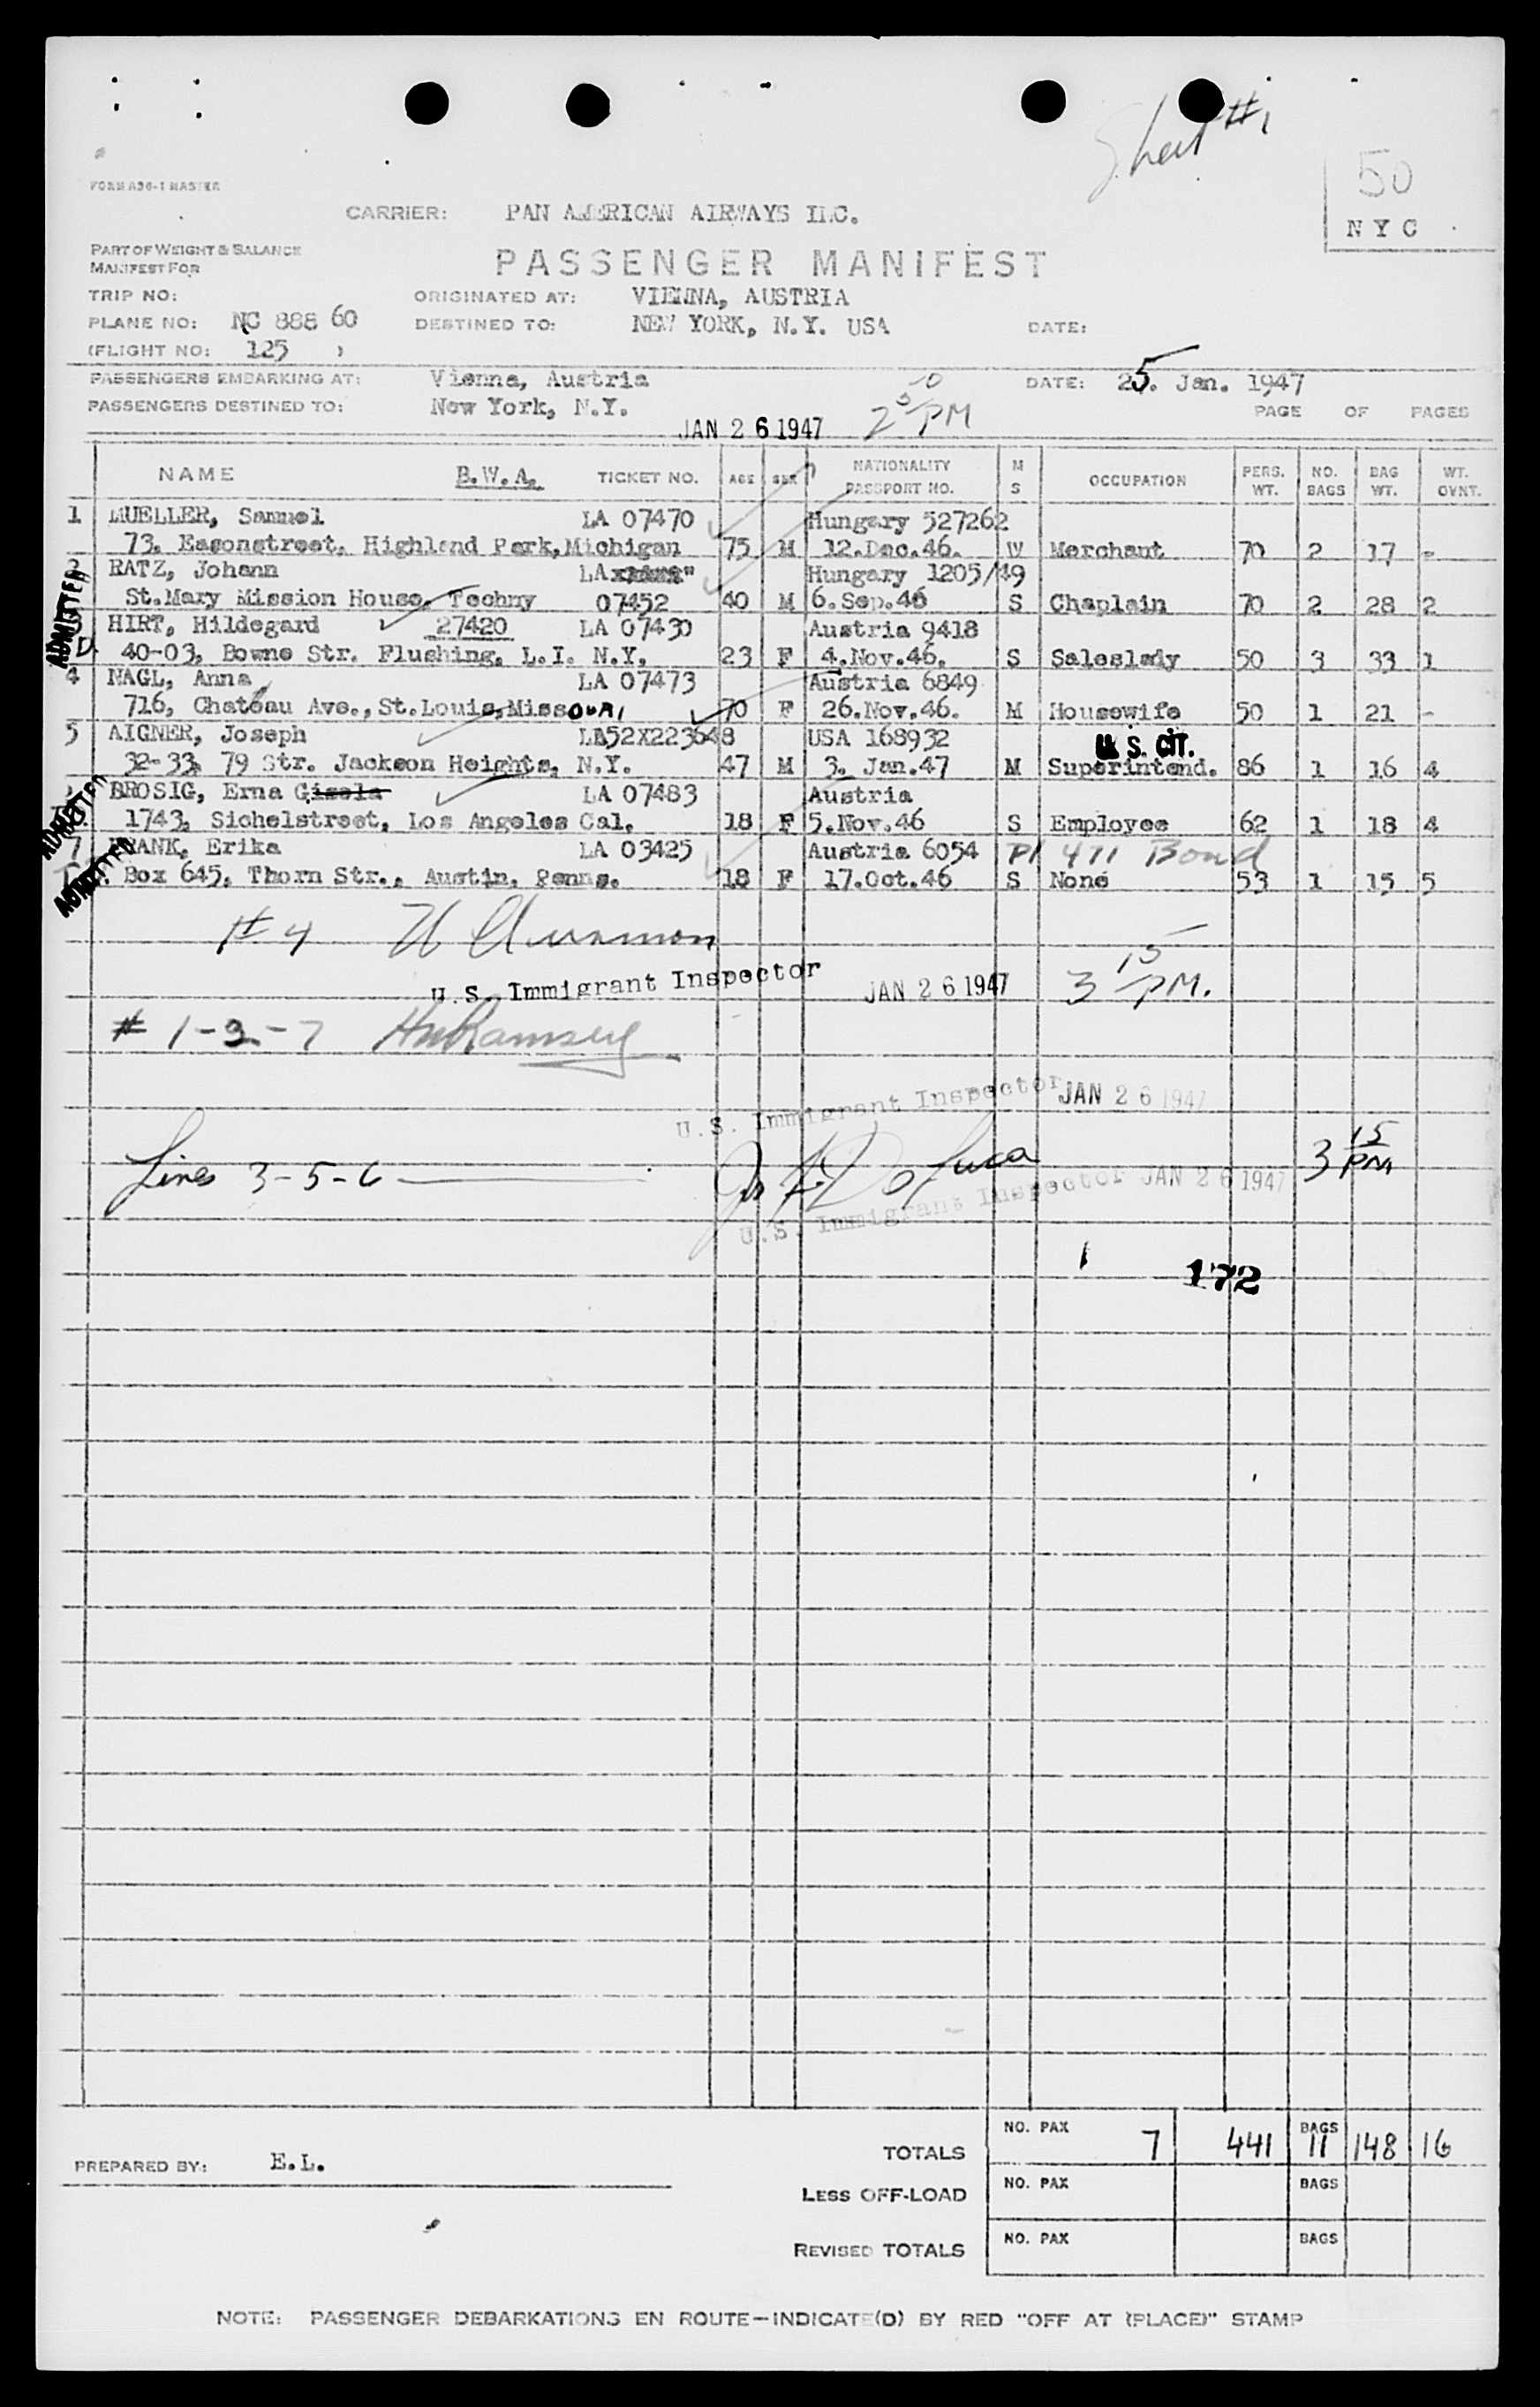 Sheet #1
50
N Y C
FORM A30-1 MASTER
CARRIER: PAN AMERICAN AIRWAYS INC.
PART OF WEIGHT & BALANCE
MANIFEST FOR
PASSENGER MANIFEST
TRIP NO: ORIGINATED AT: VIENNA, AUSTRIA
PLANE NO: NC 888 60 DESTINED TO: NEW YORK, N.Y. USA DATE:
(FLIGHT NO: 125 )
PASSENGERS EMBARKING AT: Vienna, Austria DATE: 25. Jan. 1947
PASSENGERS DESTINED TO: New York, N.Y. PAGE OF PAGES
JAN 26 1947 2 50 PM
NAME B.W.A. TICKET NO. AGE SEX NATIONALITY PASSPORT NO. M S OCCUPATION PERS. WT. NO. BAGS BAG WT. WT. OVNT.
1 MUELLER, Samuel LA 07470 Hungary 527262
73, Easonstreet, Highland Park, Michigan 75 M 12.Dec.46. W Merchant 70 2 17 -
RATZ, Johann LA Hungary 1205/49
St.Mary Mission House, Techny 07452 40 M 6.Sep.46 S Chaplain 70 2 28 2
ADMITTED
HIRT, Hildegard 27420 LA 07430 Austria 9418
40-03, Bowne Str. Flushing, L.I. N.Y. 23 F 4.Nov.46. S Saleslady 50 3 33 1
4 NAGL, Anna LA 07473 Austria 6849
716, Chateau Ave., St.Louis, Missouri 70 F 26.Nov.46. M Housewife 50 1 21 -
5 AIGNER, Joseph LA52X223648 USA 168932 U.S. CIT.
32-33, 79 Str. Jackson Heights, N.Y. 47 M 3. Jan.47 M Superintend. 86 1 16 4
BROSIG, Erna Gisela LA 07483 Austria
1743, Sichelstreet, Los Angeles Cal. 18 F 5.Nov.46 S Employee 62 1 18 4
ADMITTED
7 FRANK, Erika LA 03425 Austria 6054 Pl 471 Bond
Box 645, Thorn Str., Austin, Penns. 18 F 17.Oct.46 S None 53 1 15 5
ADMITTED
#4
U.S. Immigrant Inspector JAN 26 1947 3 15 PM.
# 1-2-7 Ramsey
U.S. Immigrant Inspector JAN 26 1947
Lines 3-5-6 DeLuca 3 15 PM
U.S. Immigrant Inspector JAN 26 1947
1 172
TOTALS NO. PAX 7 441 BAGS 11 148 16
PREPARED BY: E.L.
LESS OFF-LOAD NO. PAX BAGS
REVISED TOTALS NO. PAX BAGS
NOTE: PASSENGER DEBARKATIONS EN ROUTE—INDICATE(D) BY RED "OFF AT (PLACE)" STAMP